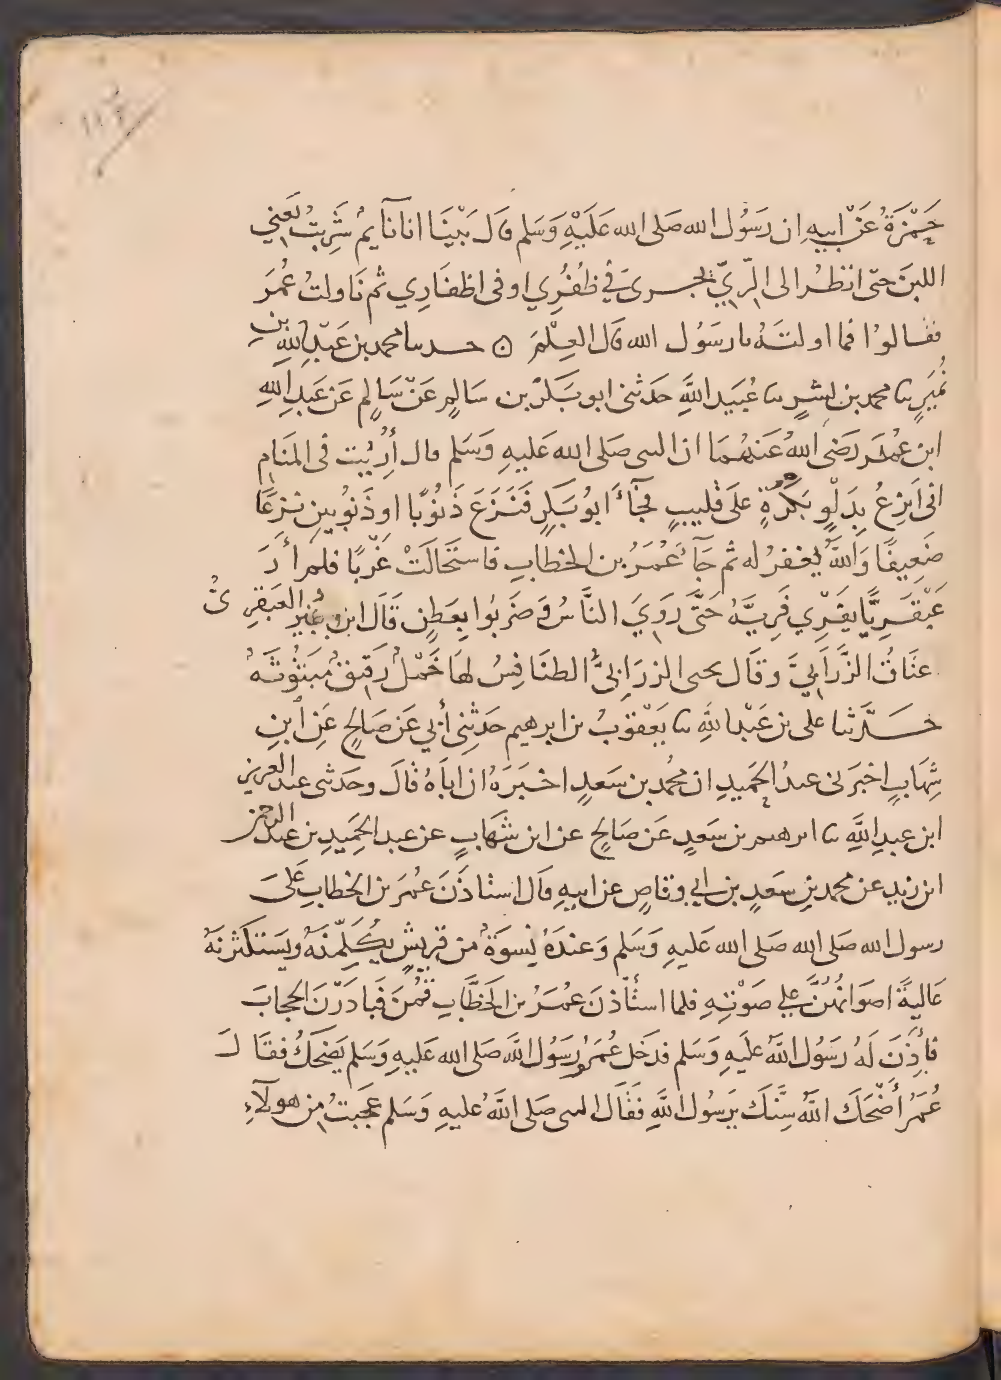 ١١٦
حَمْزَةُ عَنْ ابيهِ ان رَسُول الله صَلى الله عَلَيْهِ وَسَلم قال بَيْنَا انا نَآيمٌ شَرِبتُ يَعْنِي
اللبنَ حتى انظُر الى الرِّيِّ يجرى في ظُفُرِي او فى اظفَارِي ثم نَاولتُ عُمَرَ
فقالوُا فما اولتَهُ يا رسَوُل الله قال العِلْمَ ۞ حدثنا محمد بن عَبْدِ اللهِ بنِ
نُمَيرٍ نا محمد بن بشرٍ نا عُبَيد اللَّهِ حَدثنى ابو بَكرِ بن سَالمٍ عَنْ سَالِم عَن عَبدِ اللهِ
ابن عُمَرَ رَضىَ اللهُ عَنهُمَا ان النبى صَلى الله عَليهِ وَسَلم قال أُرِيْت فى المنَامِ
انى اَنزِعُ بِدَلْوٍ بَكْرَةٍ علىَ قليبٍ فجَآءَ ابوُ بَكرٍ فَنَزَعَ ذَنُوبًا او ذَنوُبينِ نَزعًا
ضَعِيفًا وَاللَّهُ يغفرُ له ثم جَآءَ عُمَرُ بن الخطابِ فاستَحَالَتْ غَرْبًا فلم أَرَ
عَبْقَرِيًّا يفَرِي فَرِيَّهُ حَتَّى رَوِيَ النَّاسُ وَضَرَبوُا بِعَطَنٍ قَالَ ابن نُمَيرٍ العَبقرِىُّ
عتَاقُ الزَّرَابِيَّ وقَال يحيى الزرَابِىُّ الطنَافِسُ لهَا خَمْلٌ رَقيقٌ مَبثُوثَةٌ
حدَّثنا على بن عَبْد اللهِ نا يَعْقوُبُ بن ابرهيم حَدثنِى أبي عَن صَالحٍ عَنِ ابنِ
شِهَابٍ اخبرَنى عبدُ الحَمِيدِ ان مُحمد بن سَعدٍ اخبَرَهُ ان ابَاهُ قالَ وحَدثنى عبد العزيز
ابن عبدِ اللَّهِ نا ابرهيم بن سَعدٍ عَن صَالحٍ عن ابن شهَابٍ عن عبد الحَمِيدِ بن عبد الرحمن
ابن زيد عن محمد بنِ سَعدٍ بن ابي وقاصٍ عن ابيهِ قال استاذَنَ عُمرَ بن الخطابِ عَلىَ
رسول الله صَلى الله صَلى الله عَليهِ وَسَلم وَعندَهُ نِسوَةٌ من قريشٍ يكَلِّمْنَهُ ويَستَكثرنَهُ
عَاليةً اصوَاتهُنَّ على صَوْتهِ فلما استأذنَ عُمَرُ بن الخَطَّابِ قمْنَ فبَادَرْنَ الحجابَ
فأذِنَ لَهُ رَسُول اللَّهُ عليهِ وَسَلم فدَخل عُمَرُ ورَسوُل اللَّهِ صَلى الله عَليهِ وَسَلم يَضحَكُ فقالَ
عُمَرُ أَضْحَكَ اللَّهُ سِنَّكَ يرَسوُل اللَّهِ فَقَال النبى صَلى اللَّهُ عليهِ وَسَلم عجَبتُ مِن هولآءِ